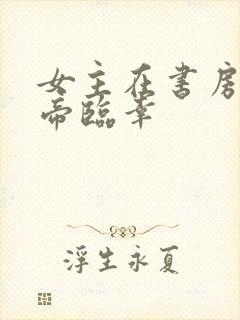 女主在书房
帝临幸
浮生永夏